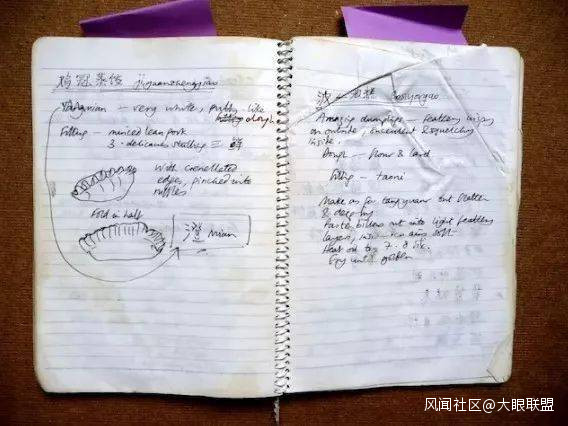 鸡冠蒸饺 jiguanzhengjiao
— very white, putty-like
dough
Filling — minced lean pork
3 delicacies stuffing 三鲜
With crenellated
edges, pinched into
ruffles
Fold in half
澄 mian
Amazing dumplings — feathery crispy
on outside, & squelchy
inside.
Dough — flour & lard
Filling — taoni
Make as for tangyuan but flatten
& deep-fry
Paste billows out into light feathery
layers, soft
Heat oil to 7-8
Fry until golden
风闻社区@大眼联盟